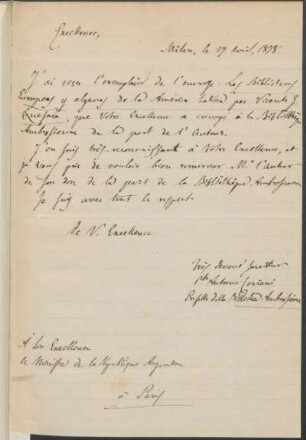 Excellence,
Milan, le 27 avril, 1878.
J'ai reçu l'exemplaire de l'ouvrage Las Bibliotecas
Europeas y algunas de la América Latina por Vicente G.
Quesada, que Votre Excellence a envoyé à la Bibliothèque
Ambrosienne de la part de l'Auteur.
J'en suis très-reconnaissant à Votre Excellence, et
je vous prie de vouloir bien remercier Mr l'auteur
de son don de la part de la Bibliothèque Ambrosienne
Je suis avec tout le respect
De V. Excellence
Très dévoué serviteur
Antonio Ceriani
Prefetto della Biblioteca Ambrosiana
À Son Excellence
le Ministre de la République Argentine
à Paris